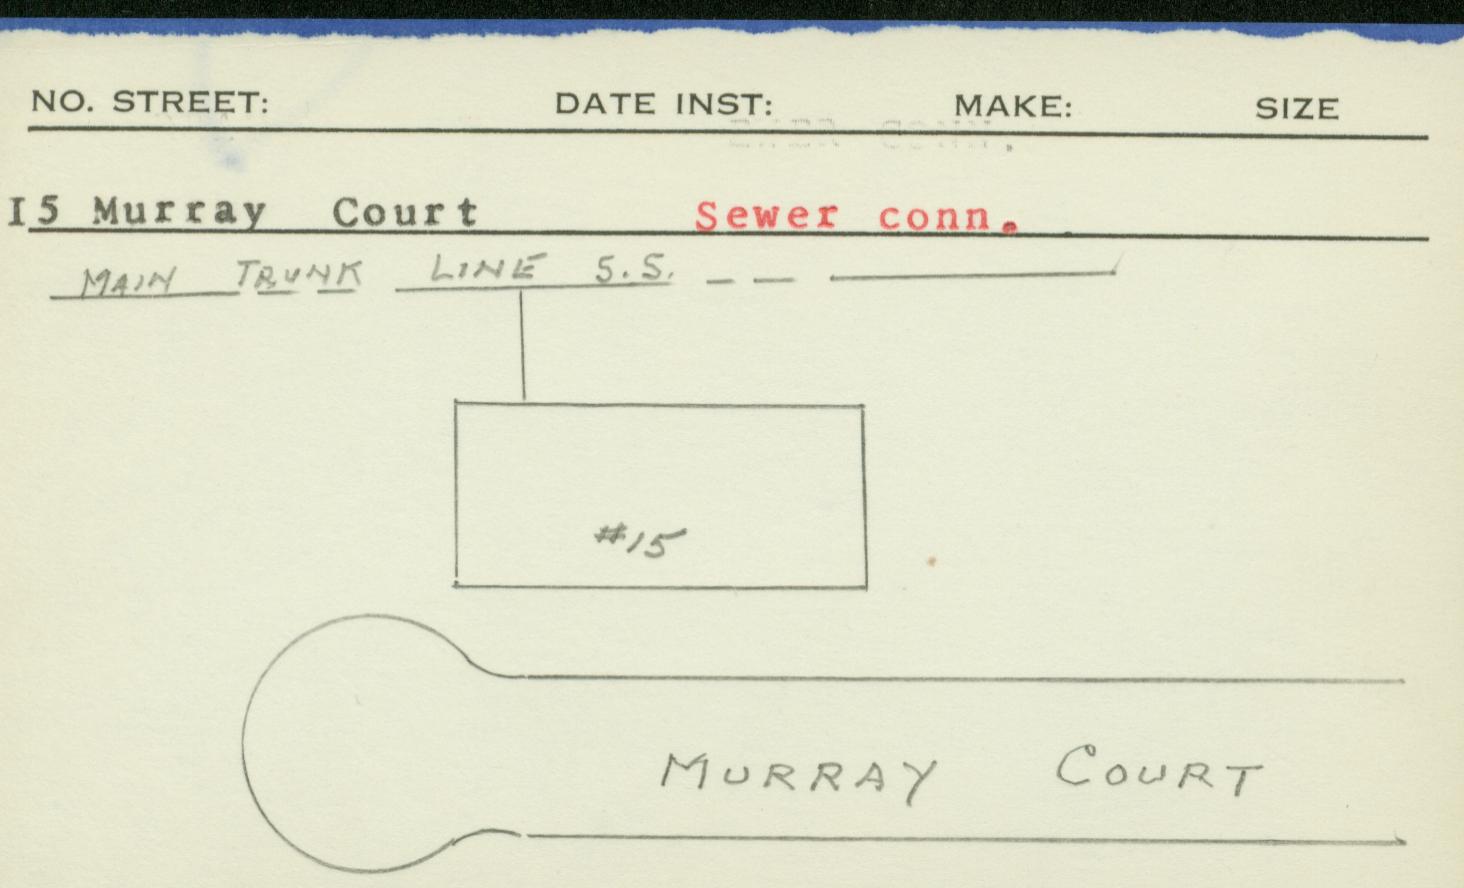 NO. STREET: DATE INST: MAKE: SIZE
I5 Murray Court Sewer conn.
MAIN TRUNK LINE S.S.
#15
MURRAY COURT